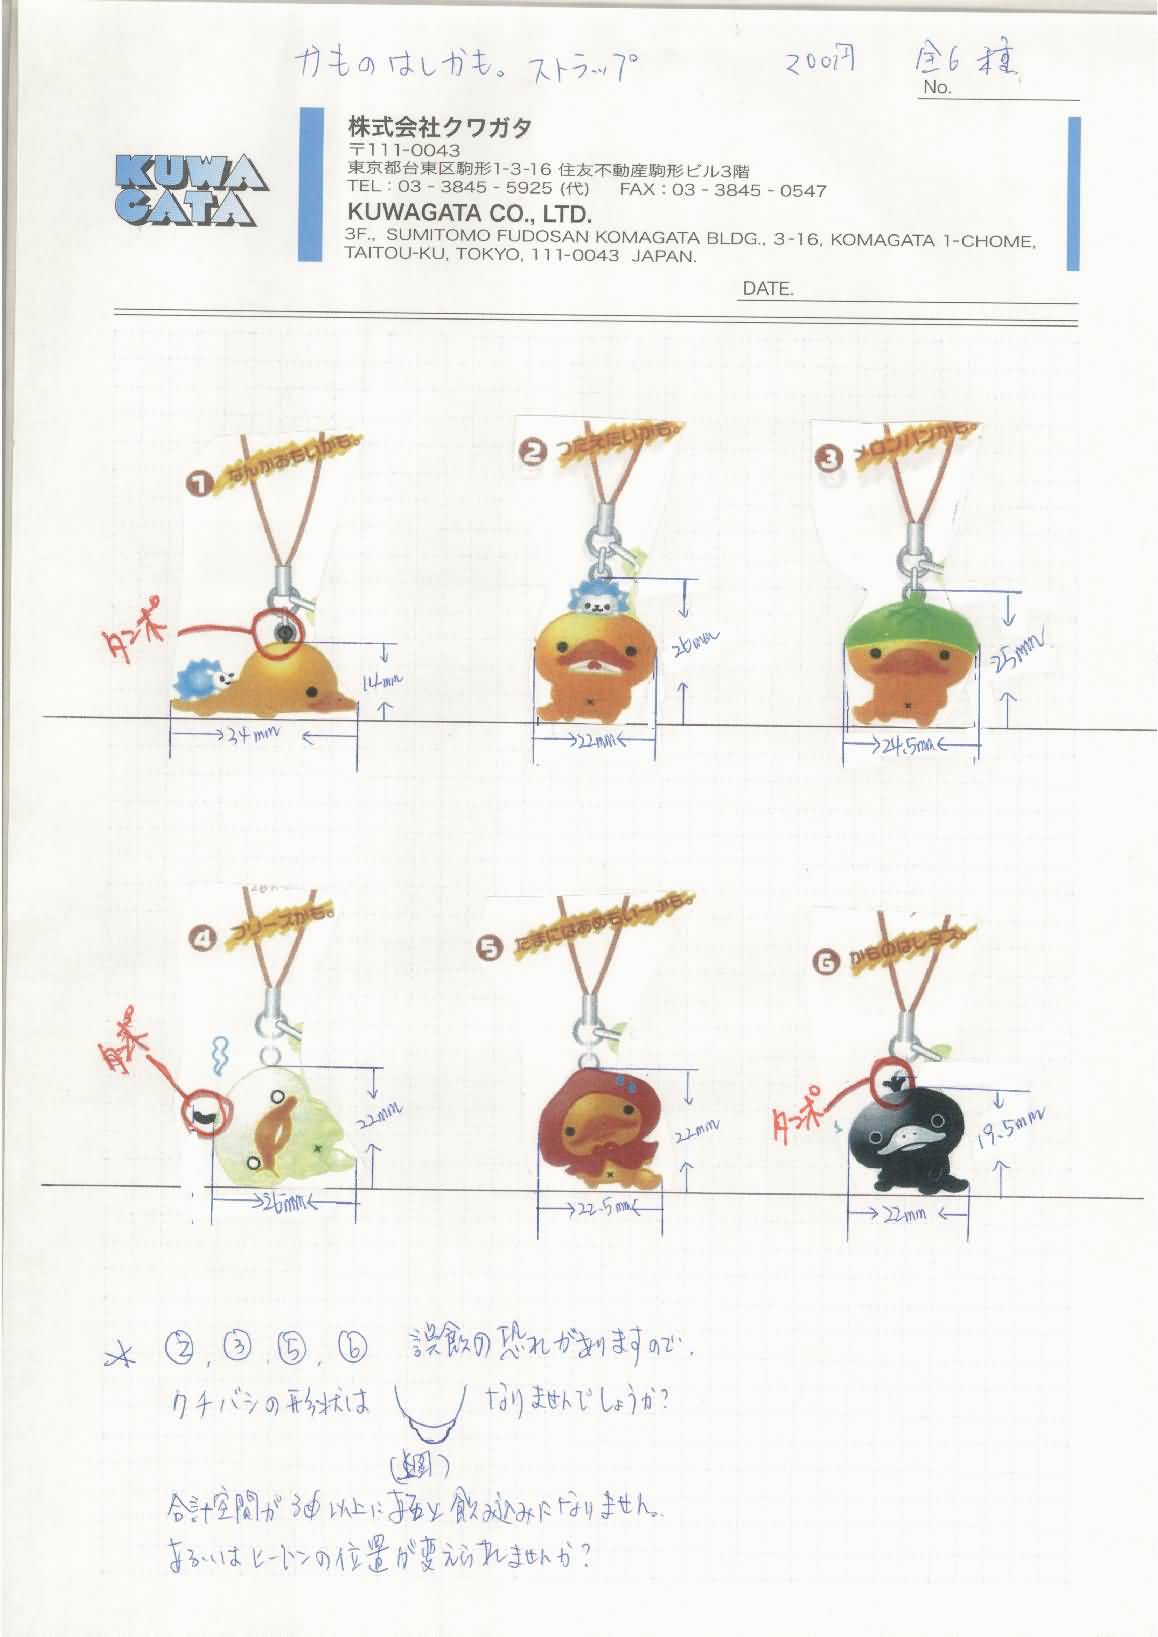 かものはしかも。ストラップ 200円 全6種
No.
KUWA
GATA
株式会社クワガタ
〒111-0043
東京都台東区駒形1-3-16 住友不動産駒形ビル3階
TEL：03 - 3845 - 5925 (代) FAX：03 - 3845 - 0547
KUWAGATA CO., LTD.
3F., SUMITOMO FUDOSAN KOMAGATA BLDG., 3-16, KOMAGATA 1-CHOME,
TAITOU-KU, TOKYO, 111-0043 JAPAN.
DATE.
1 なんかおもいかも。
タンポ
14mm
34mm
2 つたえたいかも。
26mm
22mm
3 メロンパンかも。
25mm
24.5mm
4 フリーズかも。
タンポ
22mm
26mm
5 たまにはあめもいーかも。
22mm
22.5mm
6 かものはしダス。
タンポ
19.5mm
22mm
②, ③, ⑤, ⑥ 誤飲の恐れがありますので、
クチバシの形状は なりませんでしょうか?
合計空間が 以上に と飲み込みになりません。
あるいはヒートンの位置が変えられませんか?